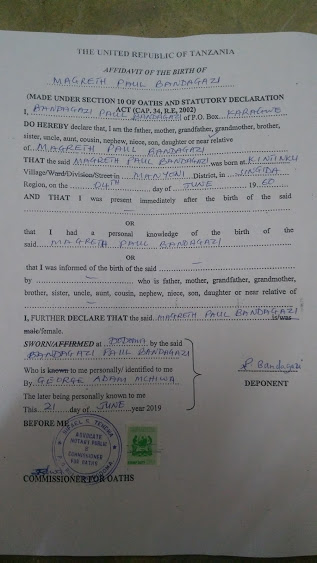 THE UNITED REPUBLIC OF TANZANIA
AFFIDAVIT OF THE BIRTH OF
MAGRETH PAUL BANDAGAZI
(MADE UNDER SECTION 10 OF OATHS AND STATUTORY DECLARATION
ACT (CAP. 34, R.E, 2002)
I, BANDAGAZI PAUL BANDAGAZI of P.O. Box KARAGWE
DO HEREBY declare that, I am the father, mother, grandfather, grandmother, brother,
sister, uncle, aunt, cousin, nephew, niece, son, daughter or near relative
of MAGRETH PAUL BANDAGAZI
THAT the said MAGRETH PAUL BANDAGAZI was born at KINTINKU
Village/Ward/Division/Street in MANYONI District, in SINGIDA
Region, on the 04th day of JUNE 19 60
AND THAT I was present immediately after the birth of the said
OR
that I had a personal knowledge of the birth of the
said MAGRETH PAUL BANDAGAZI
OR
that I was informed of the birth of the said
by who is father, mother, grandfather, grandmother,
brother, sister, uncle, aunt, cousin, nephew, niece, son, daughter or near relative of
I, FURTHER DECLARE THAT the said MAGRETH PAUL BANDAGAZI is/was
male/female.
SWORN/AFFIRMED at DODOMA by the said
BANDAGAZI PAUL BANDAGAZI
Who is known to me personally/ identified to me
By GEORGE ADAM MCHIWA
The later being personally known to me
This 21 day of JUNE year 2019
P. Bandagazi
DEPONENT
BEFORE ME
ADVOCATE
NOTARY PUBLIC
&
COMMISSIONER
FOR OATHS
COMMISSIONER FOR OATHS